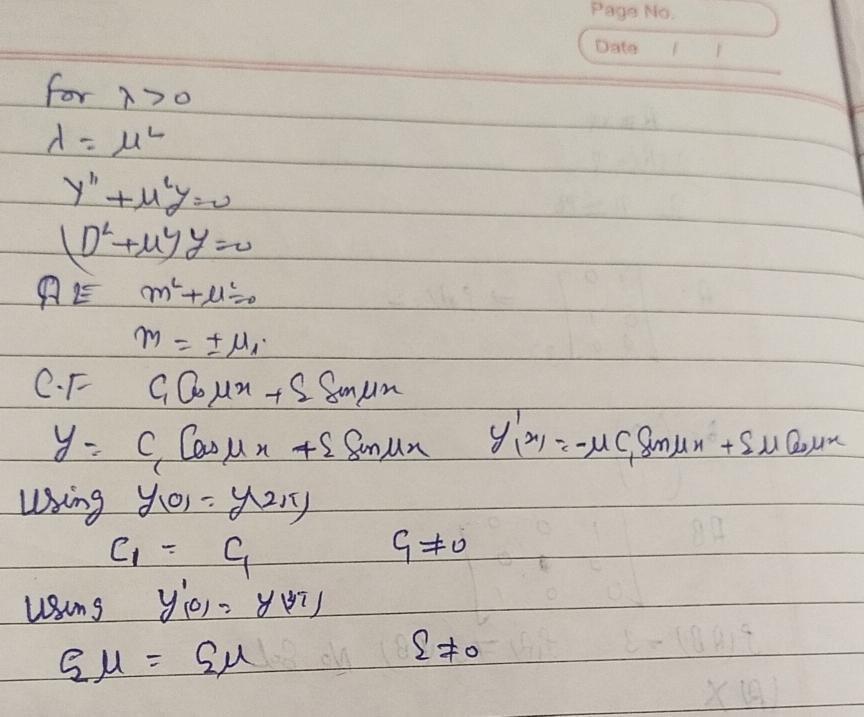 Page No.
Date / /
for λ>0
λ = μ²
y'' + μ²y = 0
(D² + μ²) y = 0
AE m² + μ² = 0
m = ± μi
C.F C₁ Cos μx + C₂ Sin μx
y = C₁ Cos μx + C₂ Sin μx y'(x) = -μ C₁ Sin μx + C₂ μ Cos μx
Using y(0) = y(2π)
C₁ = C₁ C₁ ≠ 0
Using y'(0) = y'(2π)
C₂ μ = C₂ μ C₂ ≠ 0